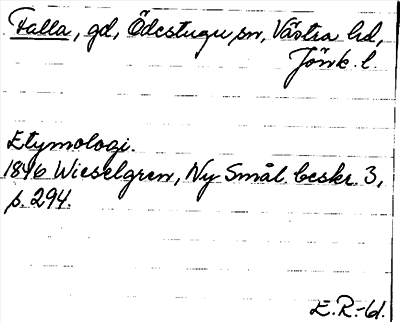 Falla, gd, Ödestugu sn, Västra hd,
Jönk. l.
Etymologi.
1846 Wieselgren, Ny Smål. beskr. 3,
s. 294.
E.R-bl.